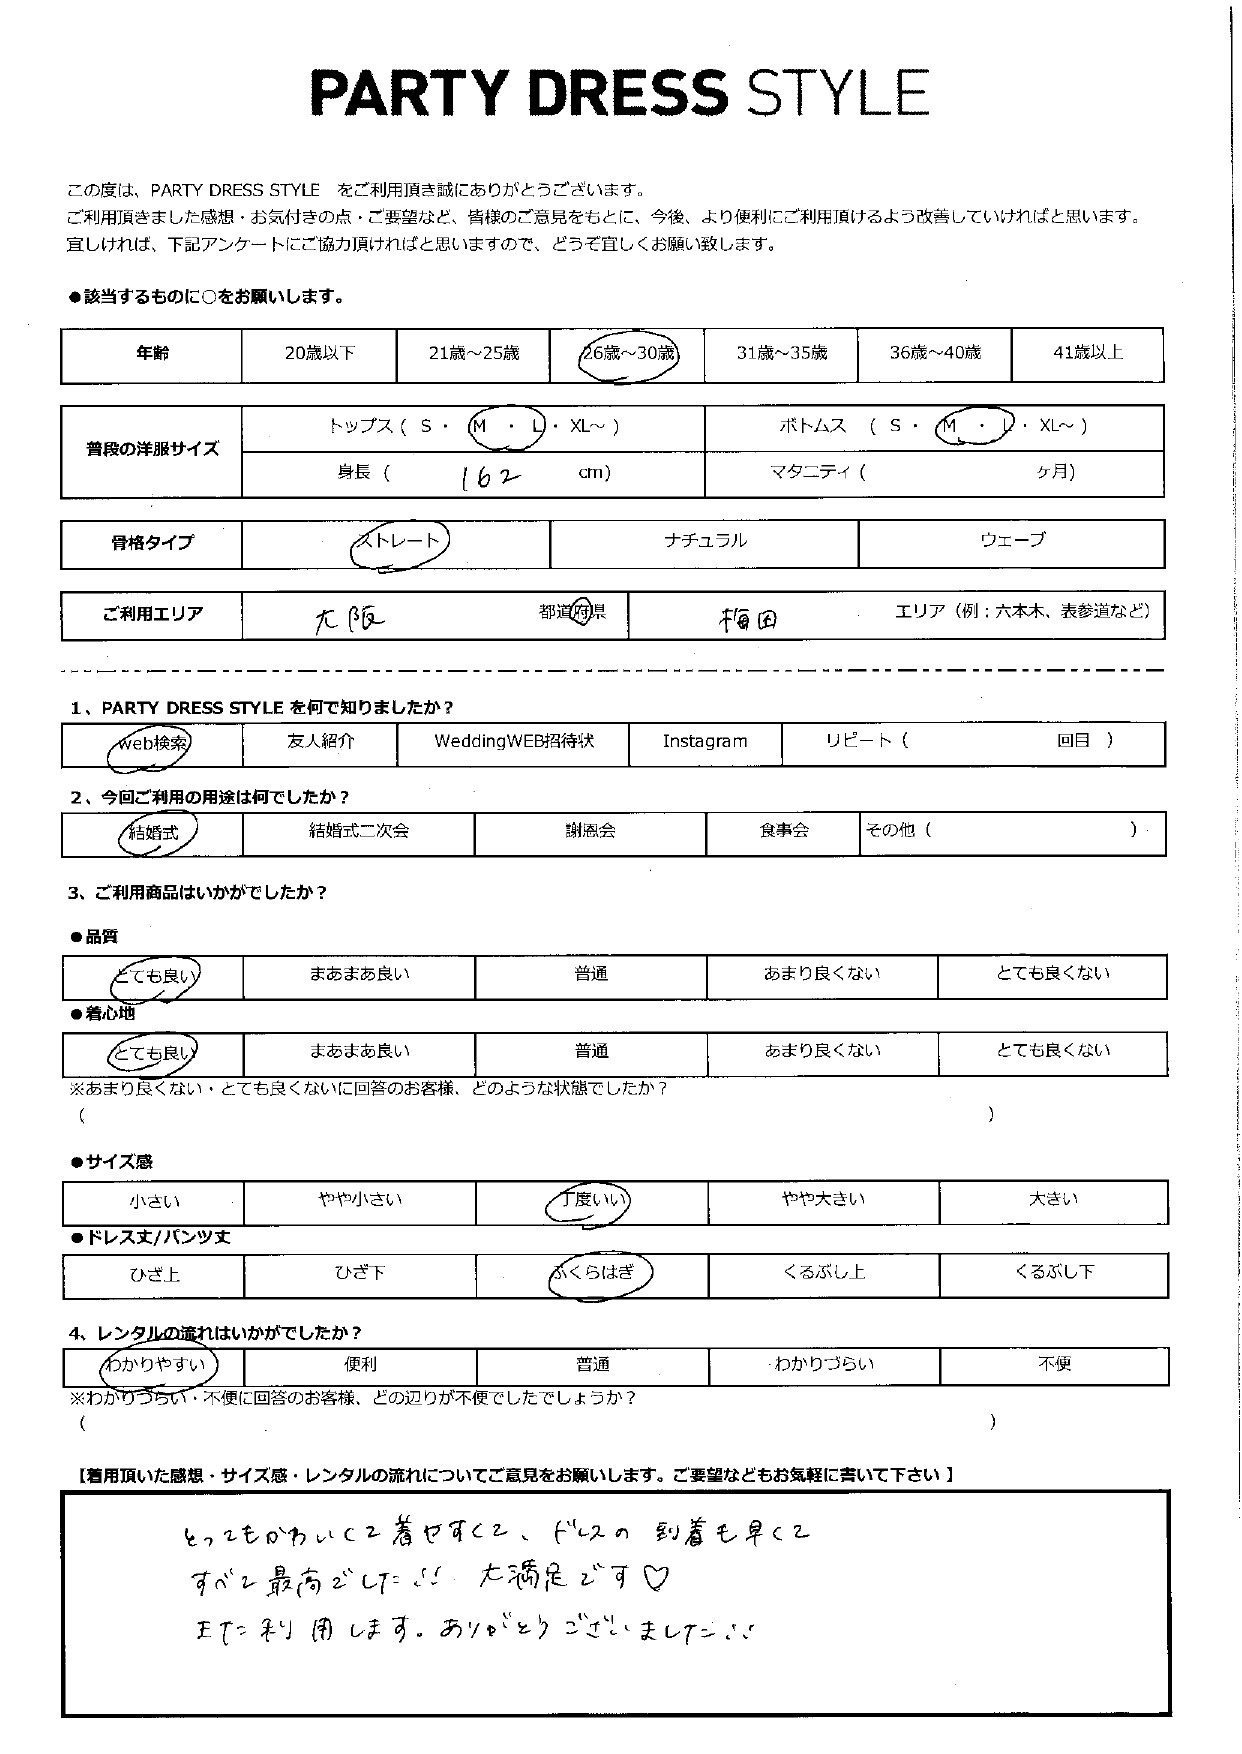 PARTY DRESS STYLE
この度は、PARTY DRESS STYLE　をご利用頂き誠にありがとうございます。
ご利用頂きました感想・お気付きの点・ご要望など、皆様のご意見をもとに、今後、より便利にご利用頂けるよう改善していければと思います。
宜しければ、下記アンケートにご協力頂ければと思いますので、どうぞ宜しくお願い致します。
●該当するものに○をお願いします。
年齢 20歳以下 21歳～25歳 26歳～30歳 31歳～35歳 36歳～40歳 41歳以上
普段の洋服サイズ トップス ( S ・ M ・ L ・ XL～ ) ボトムス ( S ・ M ・ L ・ XL～ )
身長 ( 162 cm) マタニティ ( ヶ月)
骨格タイプ ストレート ナチュラル ウェーブ
ご利用エリア 大阪 都道府県 梅田 エリア（例：六本木、表参道など）
1、PARTY DRESS STYLE を何で知りましたか？
web検索 友人紹介 WeddingWEB招待状 Instagram リピート（ 回目 ）
2、今回ご利用の用途は何でしたか？
結婚式 結婚式二次会 謝恩会 食事会 その他（ ）
3、ご利用商品はいかがでしたか？
●品質
とても良い まあまあ良い 普通 あまり良くない とても良くない
●着心地
とても良い まあまあ良い 普通 あまり良くない とても良くない
※あまり良くない・とても良くないに回答のお客様、どのような状態でしたか？
（ ）
●サイズ感
小さい やや小さい 丁度いい やや大きい 大きい
●ドレス丈/パンツ丈
ひざ上 ひざ下 ふくらはぎ くるぶし上 くるぶし下
4、レンタルの流れはいかがでしたか？
わかりやすい 便利 普通 わかりづらい 不便
※わかりづらい・不便に回答のお客様、どの辺りが不便でしたでしょうか？
（ ）
【着用頂いた感想・サイズ感・レンタルの流れについてご意見をお願いします。ご要望などもお気軽に書いて下さい】
とってもかわいくて着やすくて、ドレスの到着も早くて
すべて最高でした!! 大満足です♡
また利用します。ありがとうございました!!